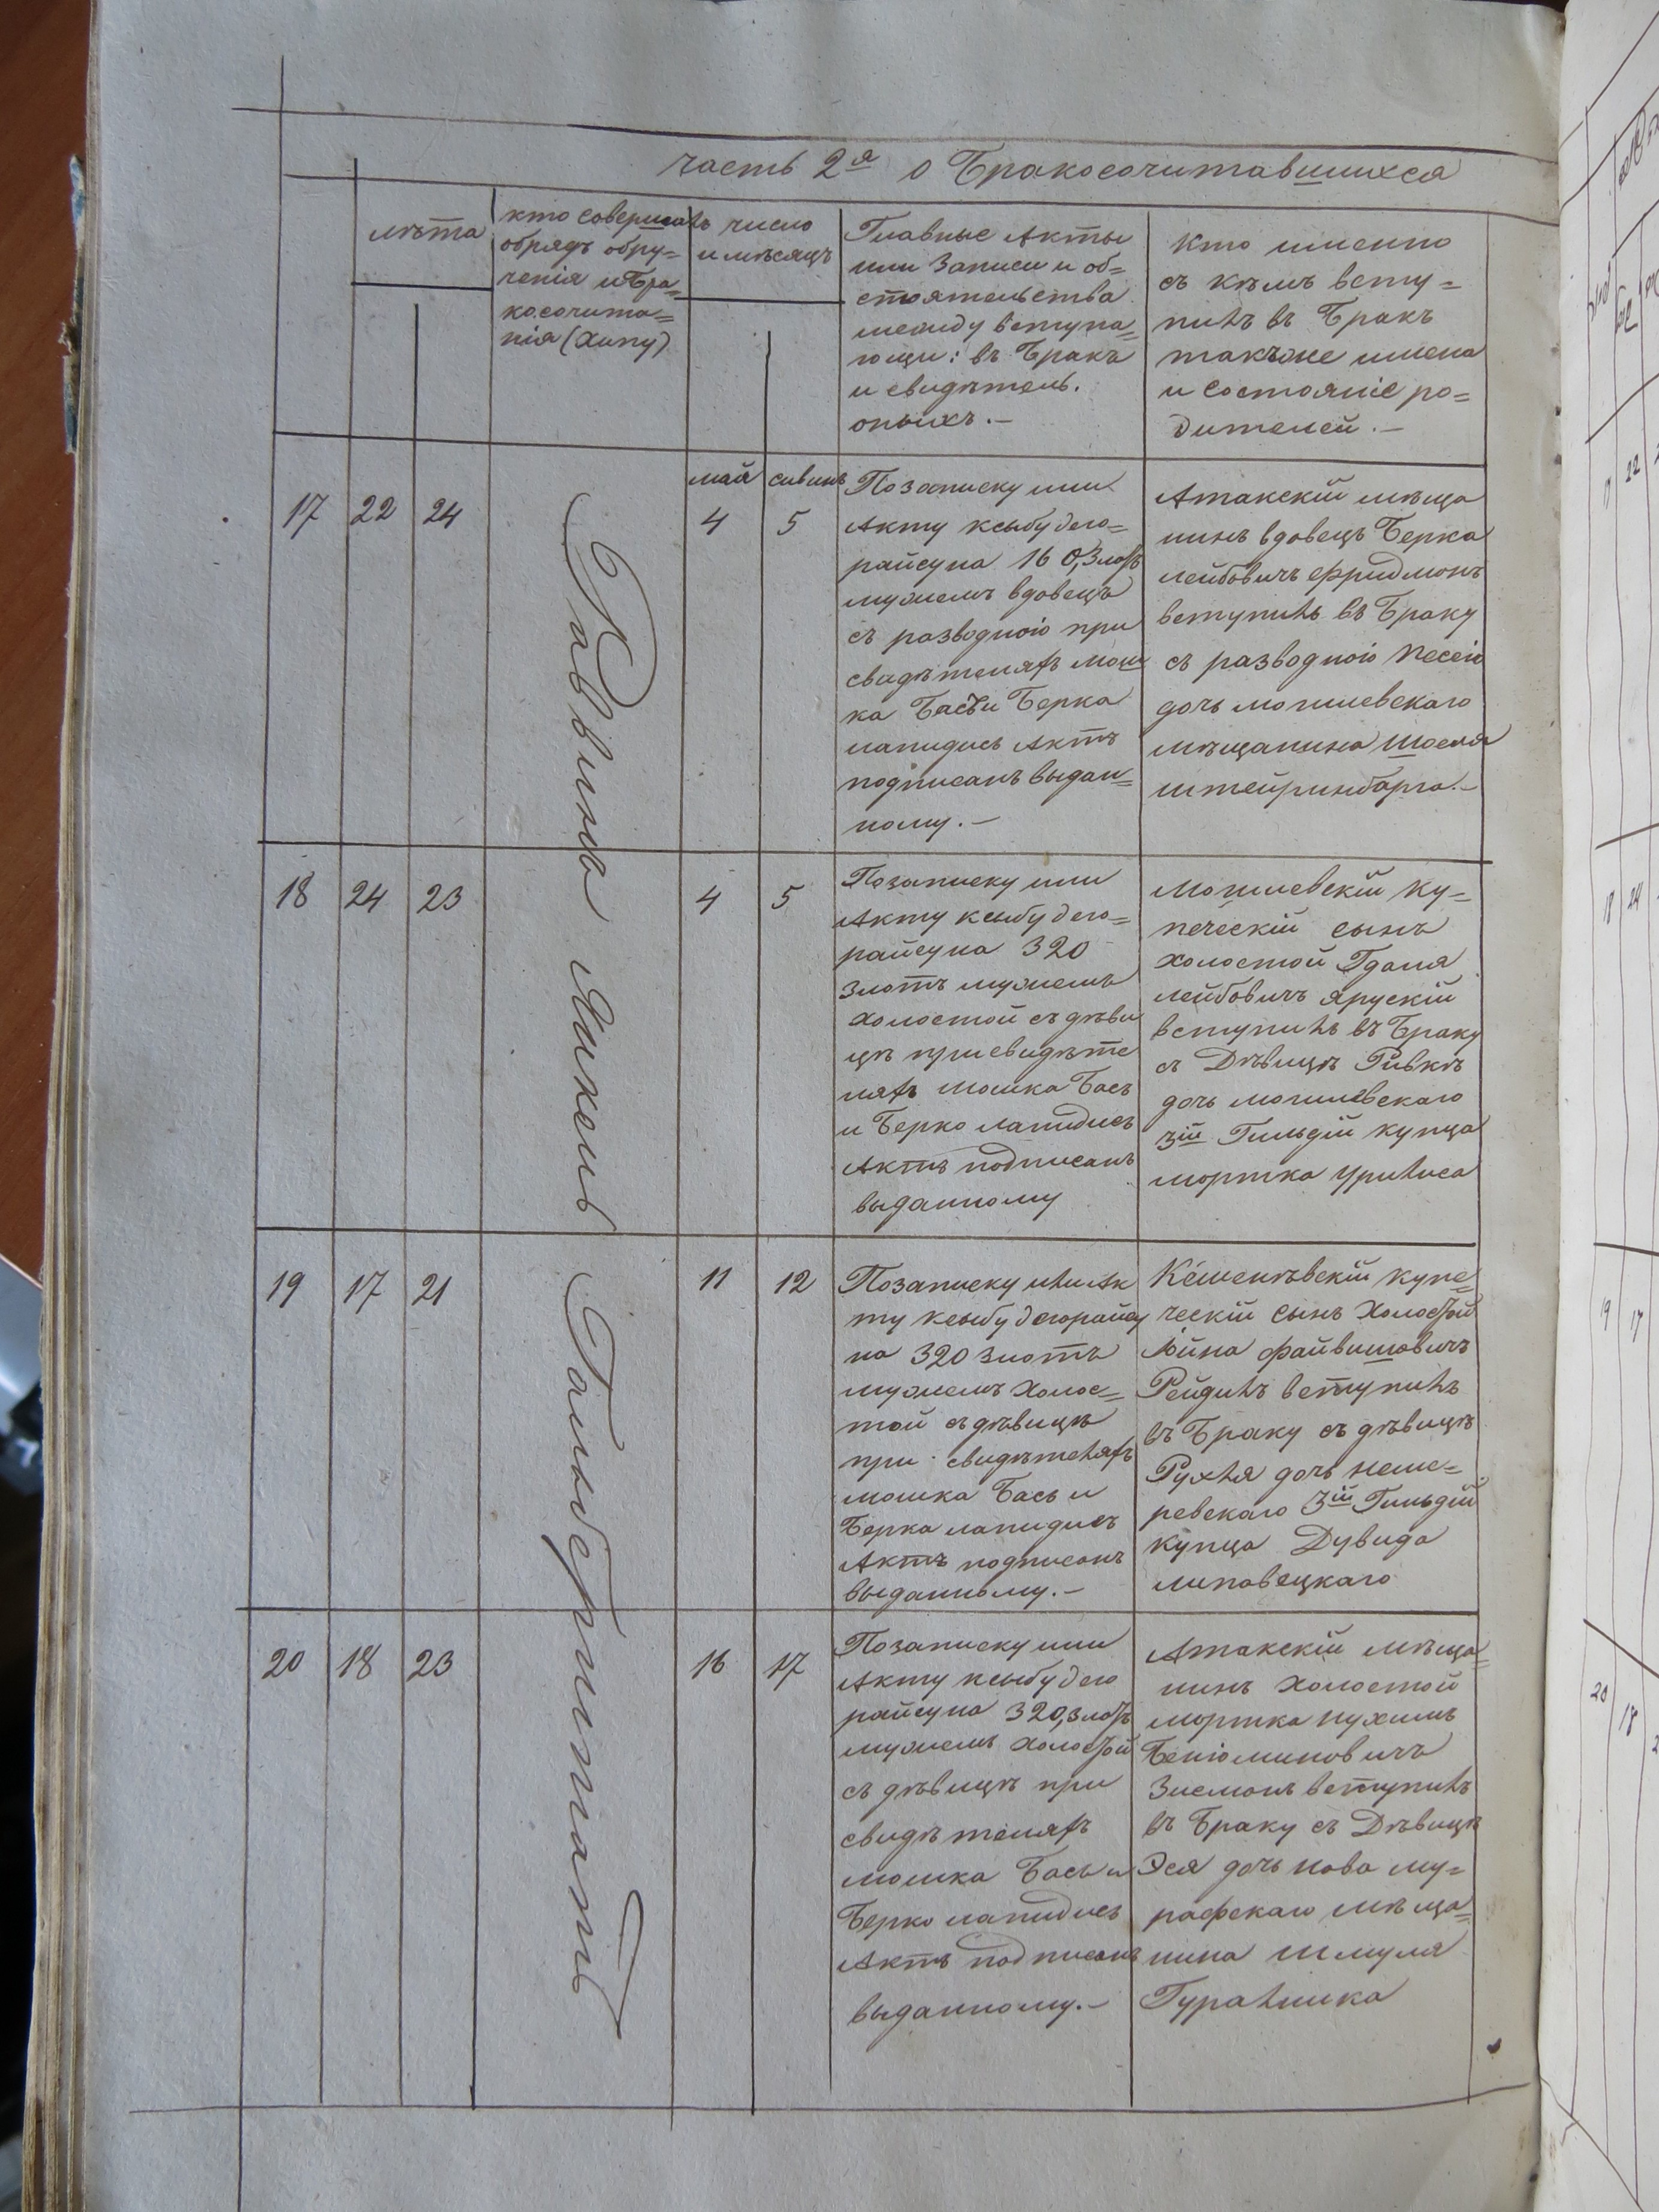 часть 2я о Бракосочитавшихся
лѣта
кто совершалъ
обрядъ обру=
ченія и Бра=
косочита=
нія (Хипу)
число
и мѣсяцъ
Главные Акты
или Записи и об=
стоятельства
между вступа=
ющи: въ Бракъ
и свидѣтель.
оныхъ.—
Кто именно
съ кѣмъ всту=
пилъ въ Бракъ
такъже имена
и состояніе ро=
дителей.—
Равина Михель Гольберштатъ
17
22
24
май
4
сиванъ
5
Позаписку или
Акту ксыбу дего=
райсуна 160, Злотъ
мужемъ вдовецъ
съ разводною при
свидѣтеляхъ Мош
ка Басъ и Берка
лапидисъ Актъ
подписанъ выдан=
ному.—
Атакскій мѣща
нинъ вдовецъ Берка
лейбовичъ Фридманъ
вступилъ въ Браку
съ разводною Песею
дочь могилевскаго
мѣщанина Шоеля
штейринбарга.—
18
24
23
4
5
Позаписку или
Акту ксыбу дего=
райсуна 320
Злотъ мужемъ
холостой съ дѣви
цѣ при свидѣте
ляхъ мошка Басъ
и Берко лапидисъ
Актъ подписанъ
выданному
Могилевскій ку=
печескій сынъ
холостой Гдаля
лейбовичъ Ярускій
вступилъ въ Браку
съ Дѣвицѣ Ривкѣ
дочь могилевскаго
3ій Гильдій купца
мортка Урилиса
19
17
21
11
12
Позаписку или Ак
ту ксыбу дегорайсу
на 320 злотъ
мужемъ холос=
той съ дѣвицѣ
при свидѣтеляхъ
мошка Басъ и
Берка лапидисъ
Актъ подписанъ
выданному.—
Кешенѣвскій купе=
ческій сынъ Холостой
Юйна файвишовичъ
Рейдилъ вступилъ
въ Браку съ дѣвицѣ
Рухля дочь неме=
ревскаго 3ій Гильдій
купца Дувида
липовецкаго
20
18
23
16
17
Позаписку или
Акту ксыбу дего
райсуна 320, злотъ
мужемъ холостой
съ дѣвицѣ при
свидѣтеляхъ
мошка Басъ и
Берко лапидисъ
Актъ подписанъ
выданному.—
Атакскій мѣща=
нинъ холостой
мортка нухимъ
Беніоминовичъ
Зисманъ вступилъ
въ Браку съ Дѣвицѣ
Эся дочь Нова му=
рафскаго мѣща=
нина Шмуля
Гуралника